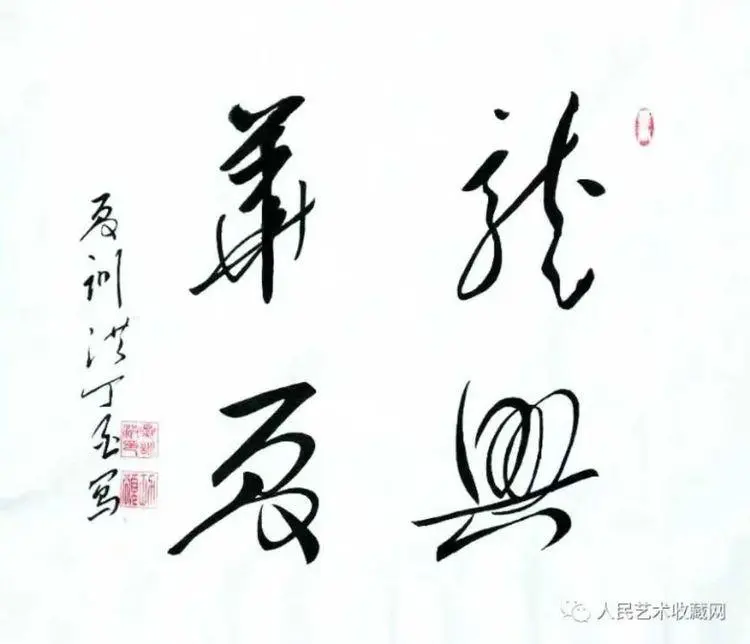 龍興
華夏
夏训洪丁酉写
人民艺术收藏网